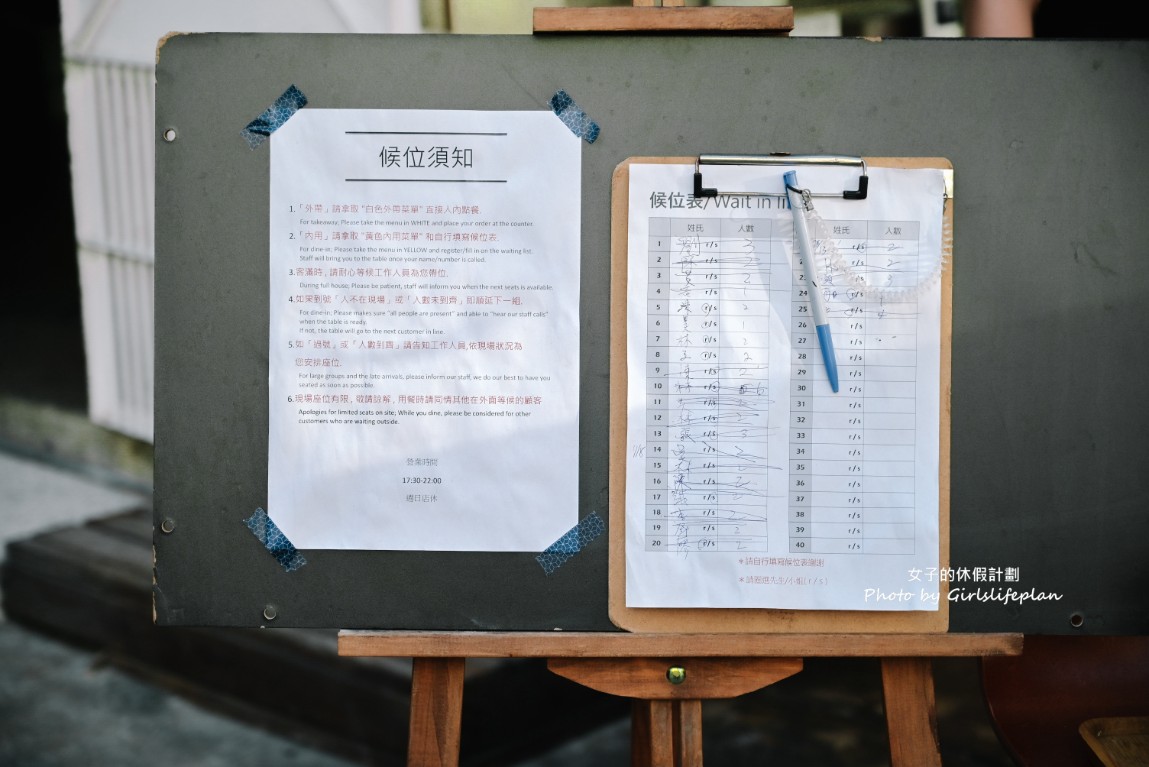 候位須知
1.「外帶」請拿取 "白色外帶菜單" 直接入內點餐.
For takeaway: Please take the menu in WHITE and place your order at the counter.
2.「內用」請拿取 "黃色內用菜單" 和自行填寫候位表.
For dine-in: Please take the menu in YELLOW and register/fill in on the waiting list.
Staff will bring you to the table once your name/number is called.
3.客滿時, 請耐心等候工作人員為您帶位.
During full house: Please be patient, staff will inform you when the next seats is available.
4.如果到號「人不在現場」或「人數未到齊」即順延下一組.
For dine-in: Please makes sure "all people are present" and able to "hear our staff calls"
when the table is ready.
If not, the table will go to the next customer in line.
5.如「過號」或「人數到齊」請告知工作人員,依現場狀況為
您安排座位.
For large groups and the late arrivals, please inform our staff, we do our best to have you
seated as soon as possible.
6.現場座位有限, 敬請諒解, 用餐時請同情其他在外面等候的顧客.
Apologies for limited seats on site; While you dine, please be considered for other
customers who are waiting outside.
營業時間
17:30-22:00
週日店休
候位表/Wait in
姓氏 人數
1 r/s 3
2 r/s 2
3 r/s 2
4 r/s 1
5 r/s 2
6 r/s 1
7 林 r/s
8 王 r/s 2
9 r/s
10 r/s 6
11 r/s
12 r/s
13 張 r/s 3
14 r/s
15 r/s
16 r/s
17 r/s
18 r/s 2
19 r/s 2
20 r/s 2
姓氏 人數
r/s 2
r/s 2
r/s
24 r/s
25 r/s
26 r/s
27 r/s
28 r/s
29 r/s
30 r/s
31 r/s
32 r/s
33 r/s
34 r/s
35 r/s
36 r/s
37 r/s
38 r/s
39 r/s
40 r/s
*請自行填寫候位表謝謝
*請圈選先生/小姐( r / s )
女子的休假計劃
Photo by Girlslifeplan